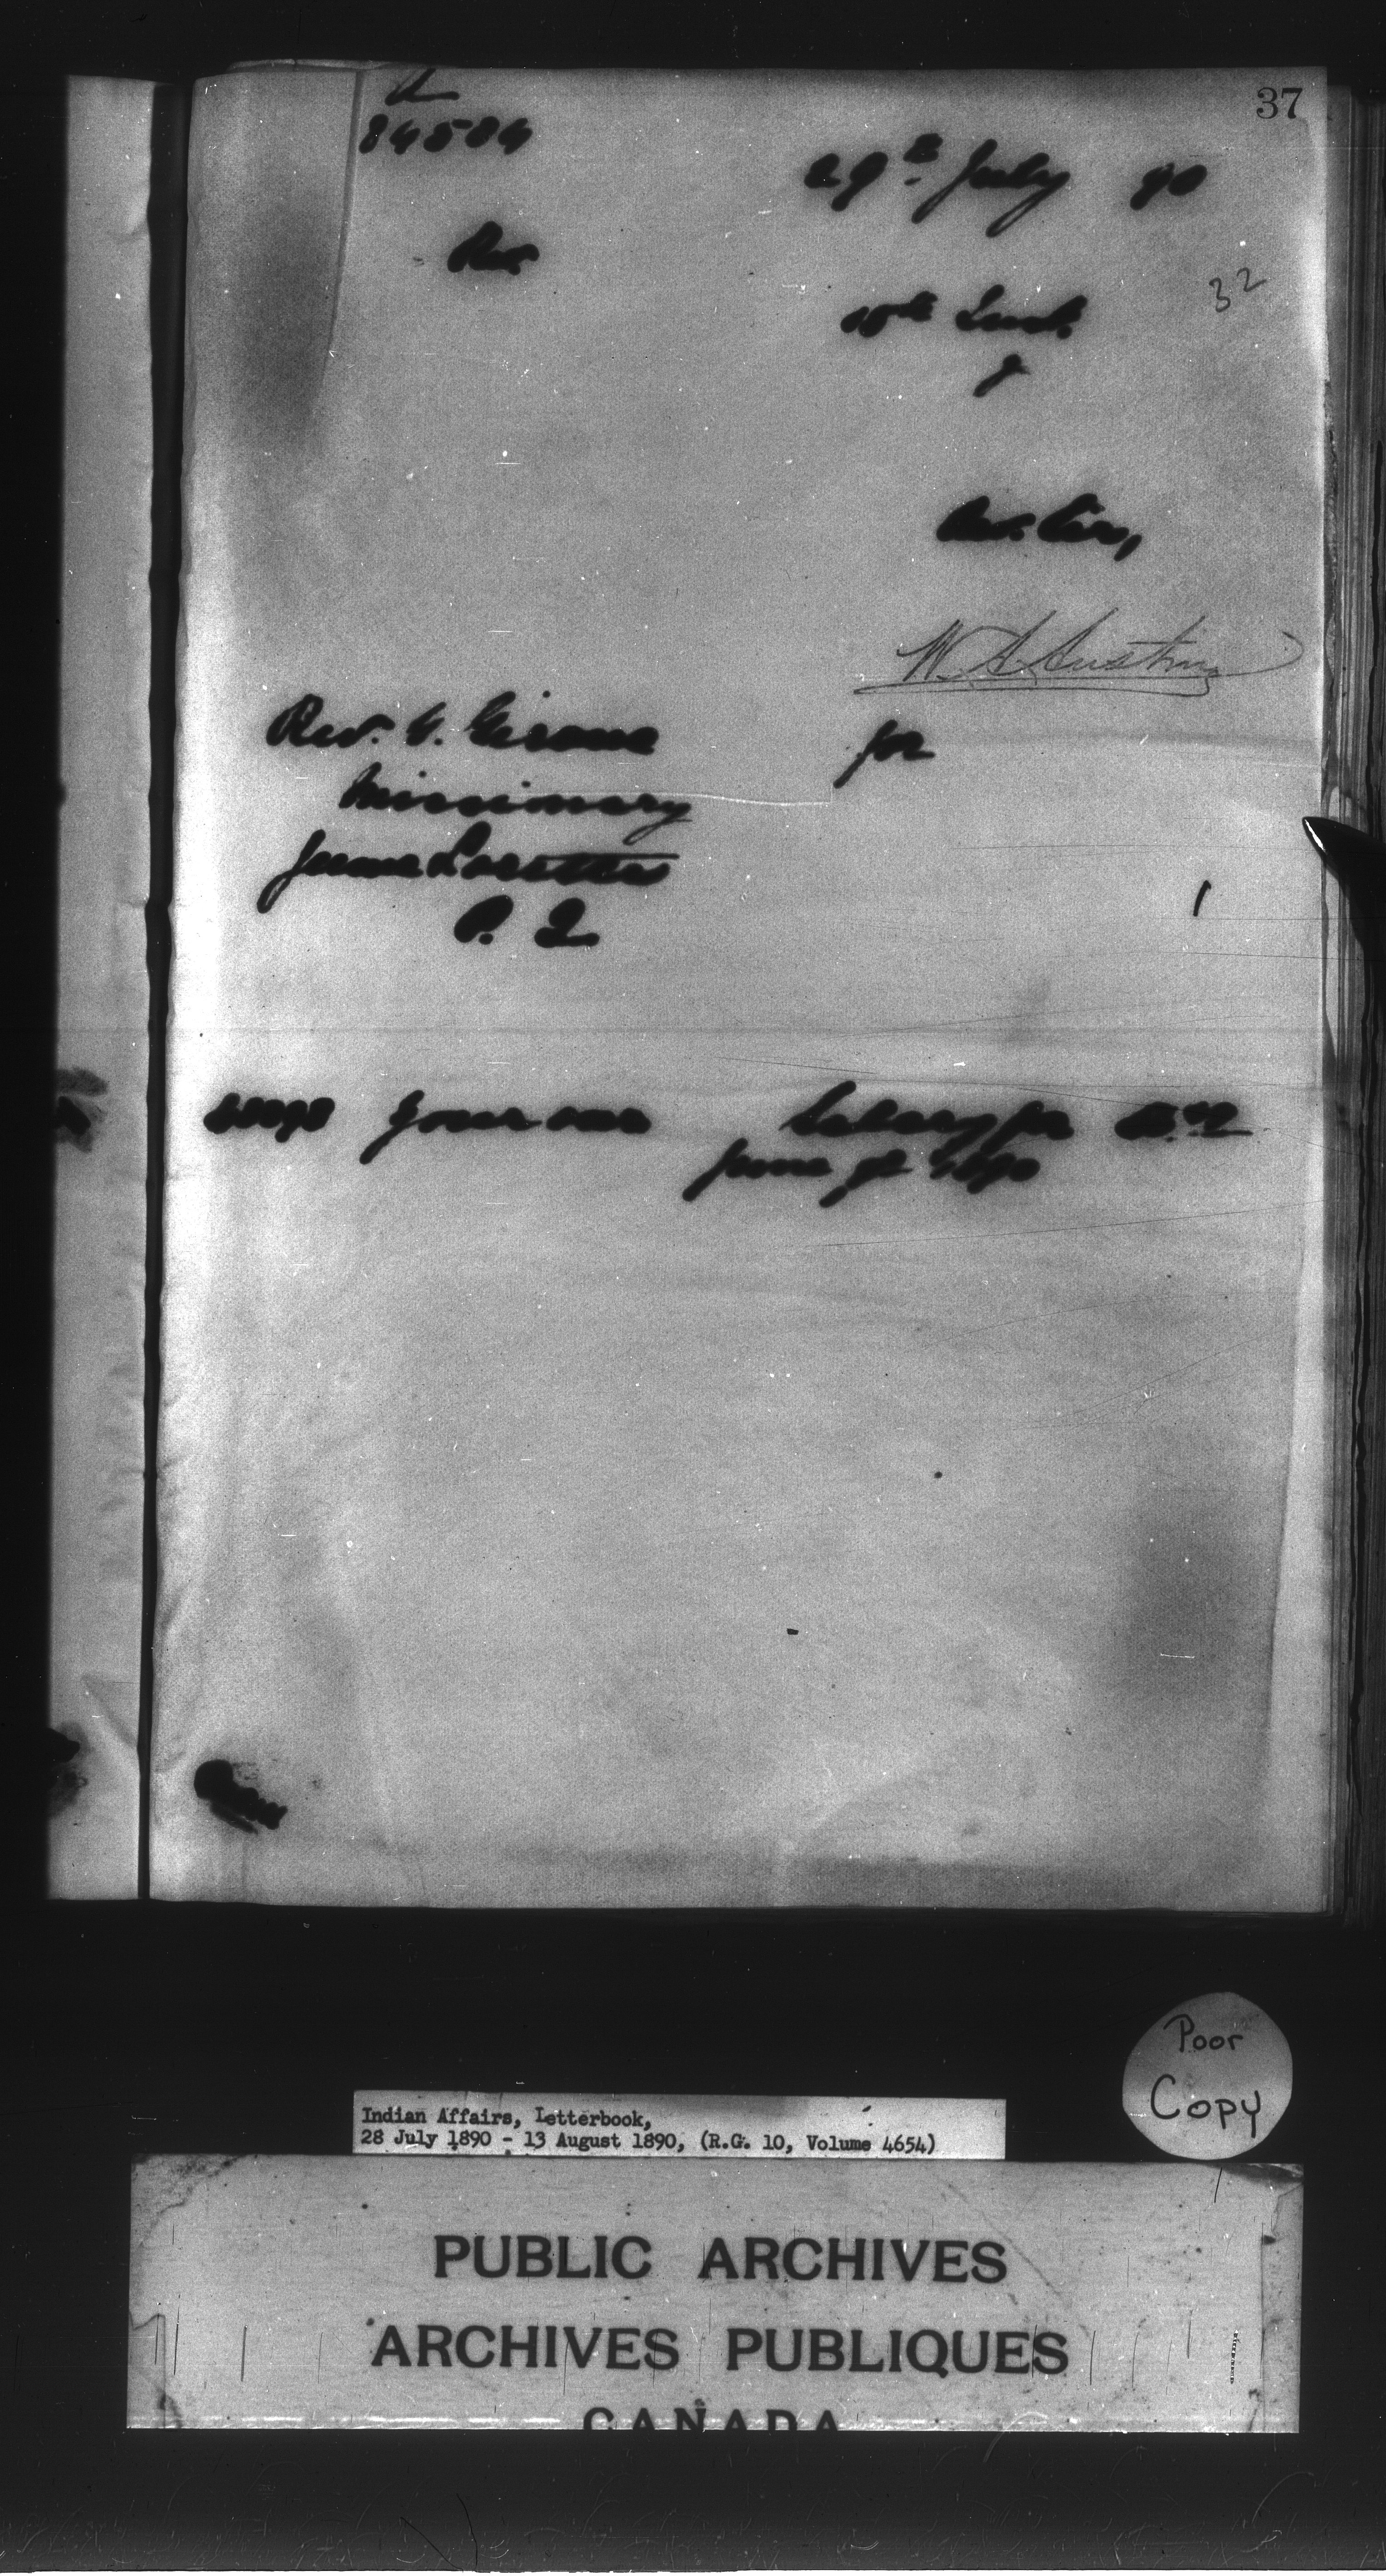 37
84584
29th July 90
Rev.
32
15th Inst.
Rev. Sir,
W. A. Austin
Rev. G. Giroux
for
Missionary
Jeune Lorette
P. Q
Your own Salary for
June qr 1890
Poor
Copy
Indian Affairs, Letterbook,
28 July 1890 - 13 August 1890, (R.G. 10, Volume 4654)
PUBLIC ARCHIVES
ARCHIVES PUBLIQUES
CANADA